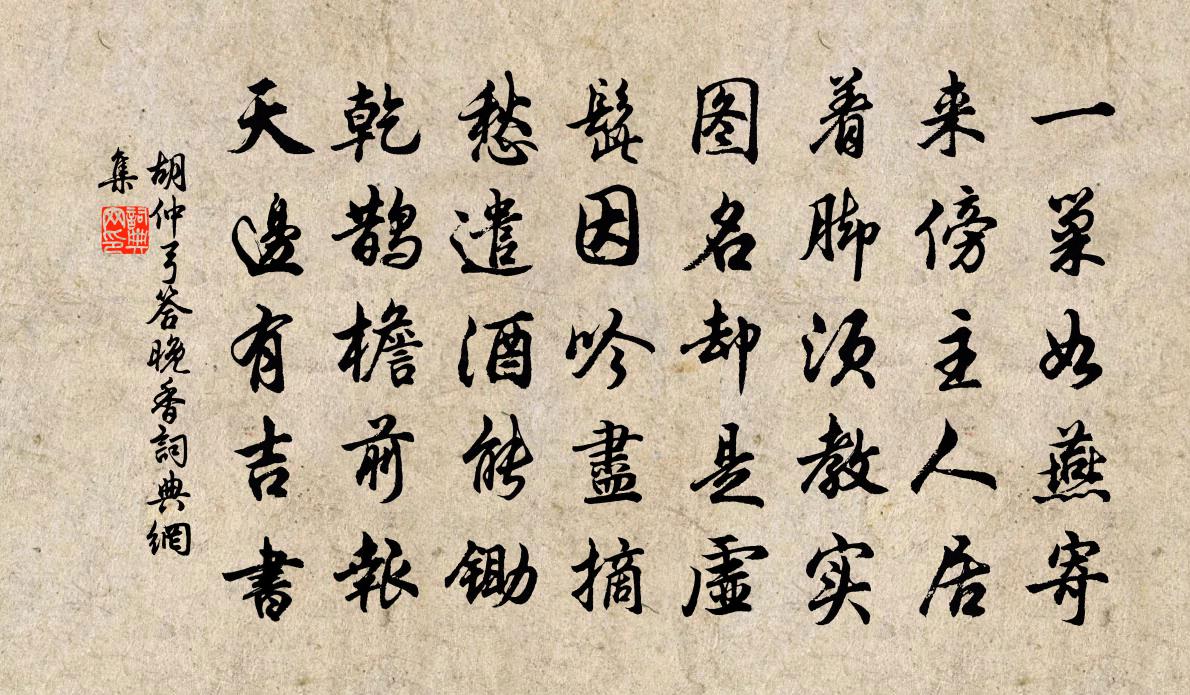 一巢如燕寄
来傍主人居
着脚须教实
图名却是虛
髭因吟盡摘
愁遣酒能鋤
乾鹊檐前報
天邊有吉書
胡仲弓答晚香詞典網
集
詞典
网印